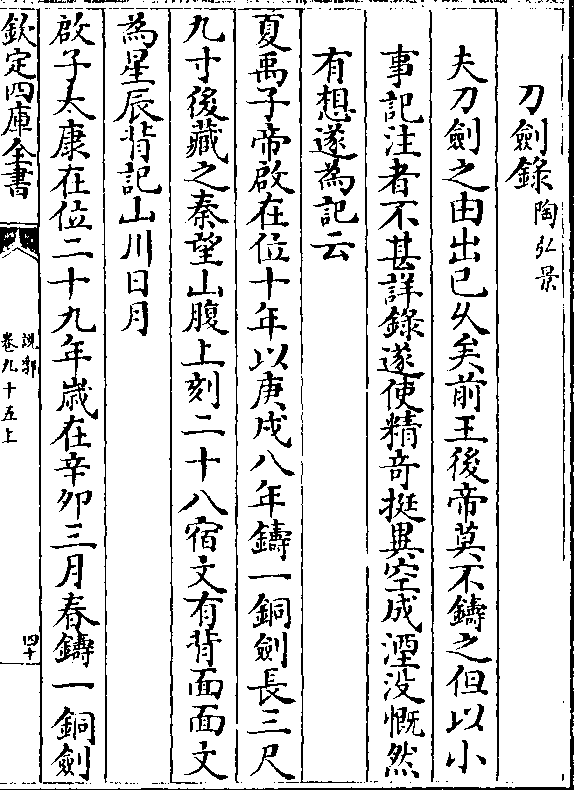 刀劍錄 陶弘景
夫刀劍之由出已久矣前王後帝莫不鑄之但以小
事記注者不甚詳錄遂使精竒挺異空成湮没慨然
有想遂為記云
夏禹子帝啟在位十年以庚戌八年鑄一銅劍長三尺
九寸後藏之秦望山腹上刻二十八宿文有背面面文
為星辰背記山川日月
啟子太康在位二十九年歳在辛卯三月春鑄一銅劍
欽定四庫全書
說郛
卷九十五上
四十